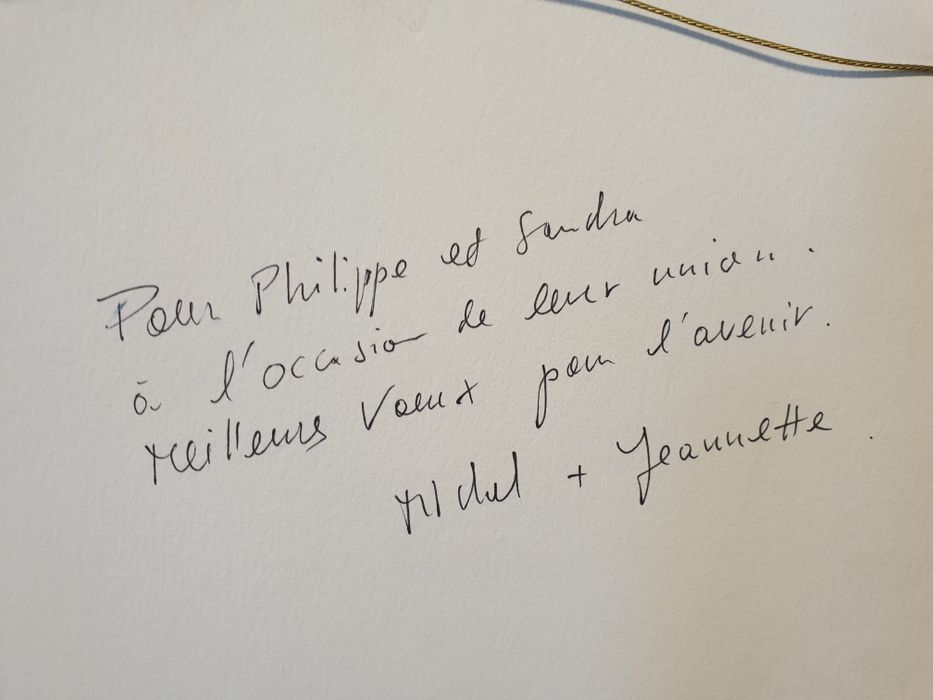 Pour Philippe et Sandra
à l'occasion de leur union.
Meilleurs Vœux pour l'avenir.
Michel + Jeannette.